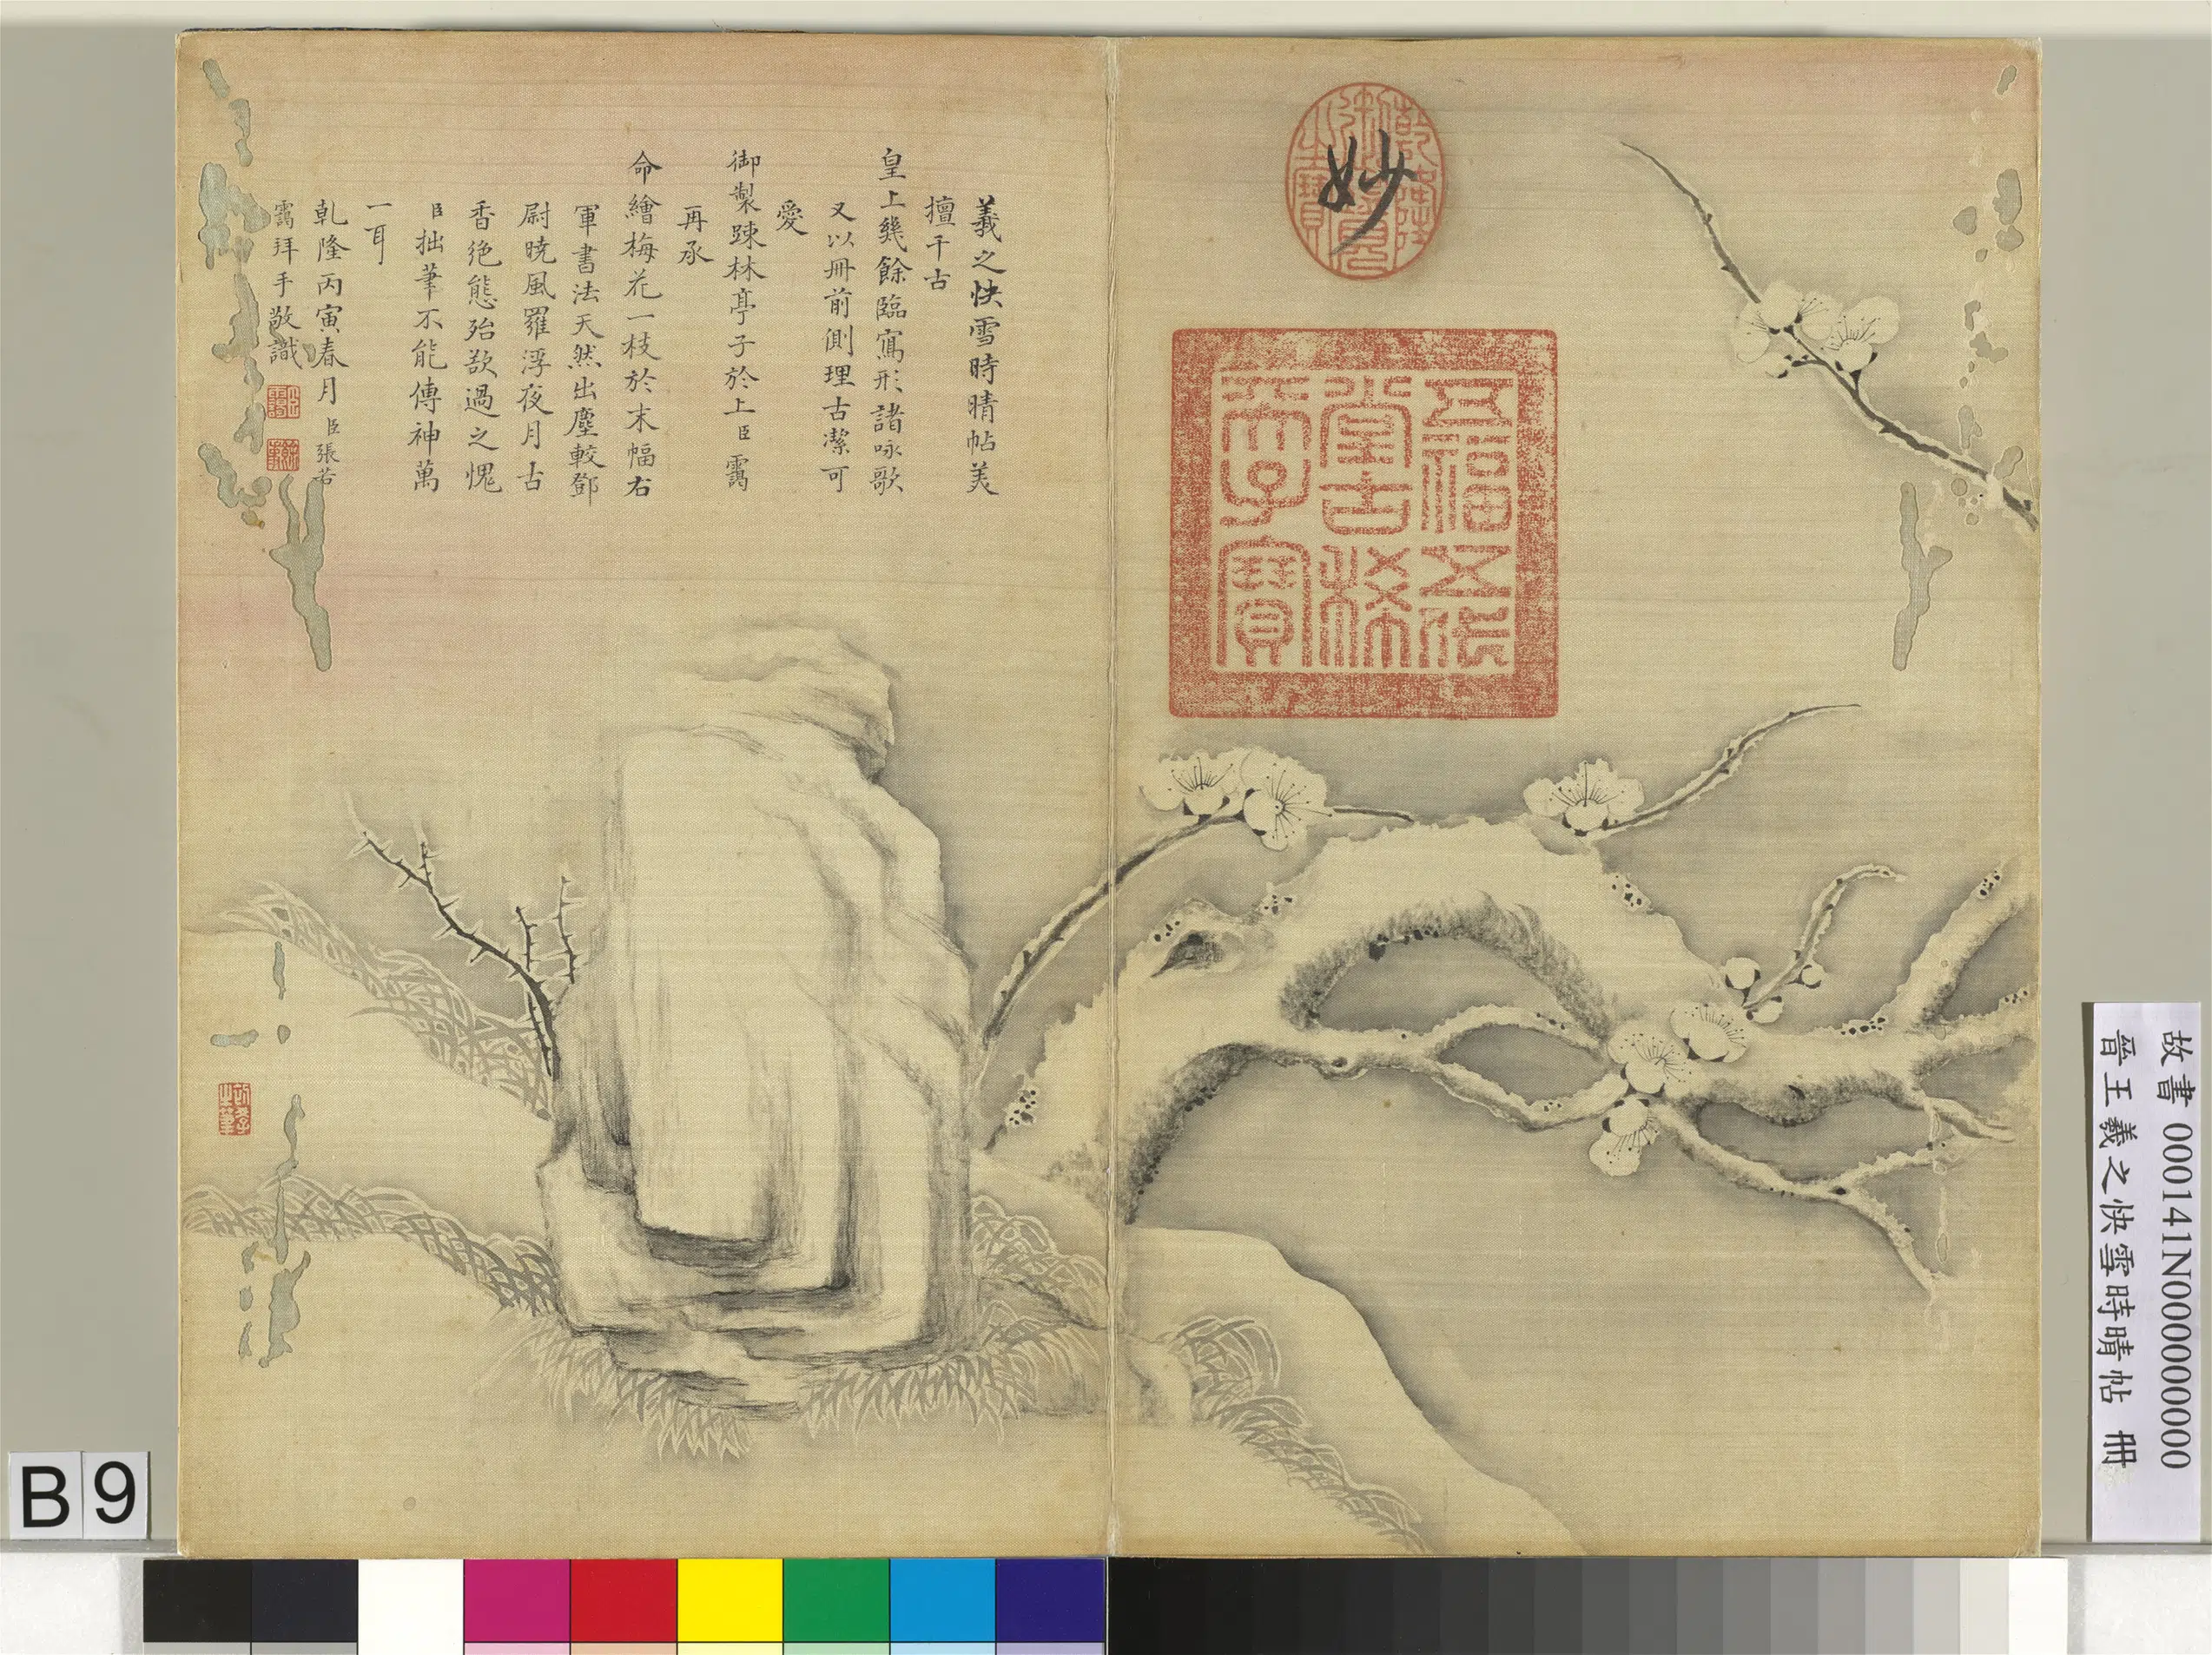 妙
乾隆御覽之寶
五福五代
堂古稀
天子寶
羲之快雪時晴帖美
擅千古
皇上幾餘臨寫形諸咏歌
又以冊前側理古潔可
愛
御製踈林亭子於上臣靄
再承
命繪梅花一枝於末幅右
軍書法天然出塵較鄧
尉曉風羅浮夜月古
香絕態殆欲過之愧
臣拙筆不能傳神萬
一耳
乾隆丙寅春月臣張若
靄拜手敬識
故書 000141N000000000
晉王羲之快雪時晴帖 冊
B 9